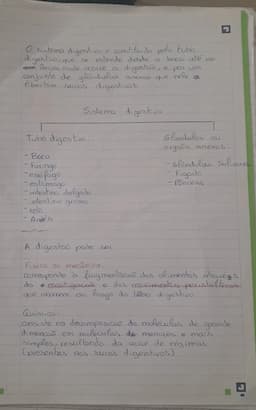 O sistema digestivo é constituído pelo tubo
digestivo, que se estende desde a boca até ao
onde ocorre a digestão, e por um
conjunto de glândulas anexas que nele
libertam sucos digestivos.
Sistema digestivo
Tubo digestivo
Glândulas ou
órgãos anexos
- Boca
- Faringe
- esófago
- estômago
- intestino delgado
- intestino grosso
- reto
- Ânus
- Glândulas Salivares
- Fígado
- Pâncreas
A digestão pode ser
Física ou mecânica:
corresponde à fragmentação dos alimentos através
da mastigação e dos movimentos peristálticos
que ocorrem ao longo do tubo digestivo
Química:
consiste na decomposição de moléculas de grande
dimensão em moléculas de menores e mais
simples, resultando da ação de enzimas
(presentes nos sucos digestivos)